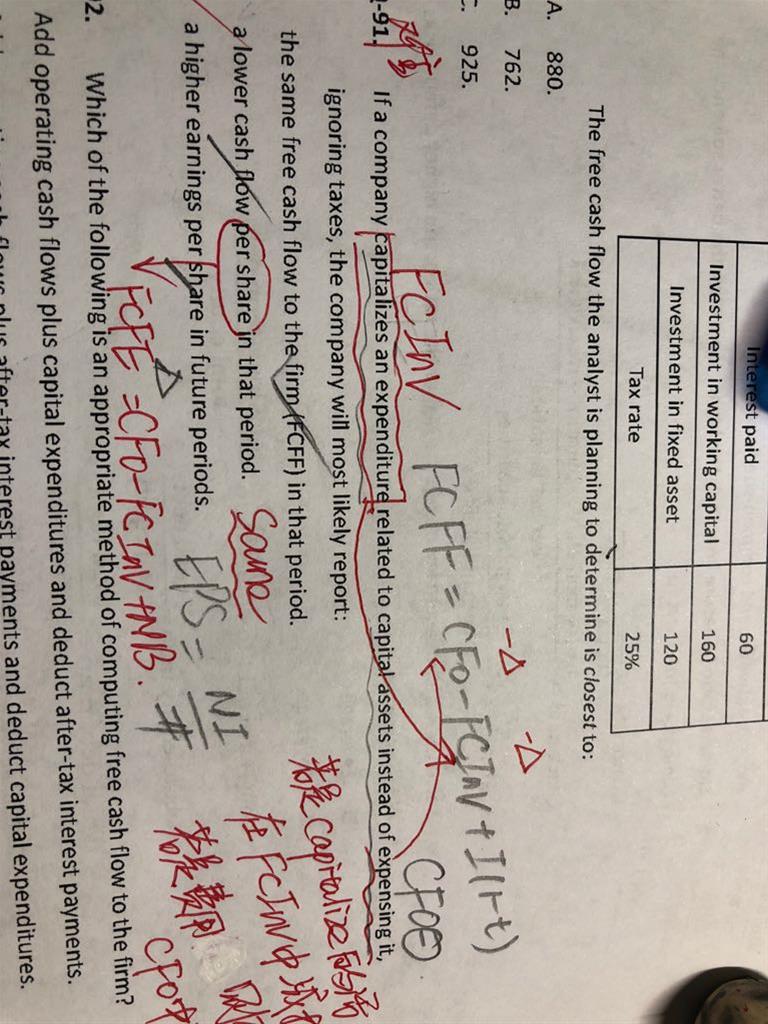 Interest paid 60
Investment in working capital 160
Investment in fixed asset 120
Tax rate 25%
The free cash flow the analyst is planning to determine is closest to:
A. 880.
B. 762.
C. 925.
FCInv FCFF = CFO-FCInv+I(1-t)
-Δ -Δ
CFO⊖
-91. If a company capitalizes an expenditure related to capital assets instead of expensing it,
ignoring taxes, the company will most likely report:
the same free cash flow to the firm (FCFF) in that period.
a lower cash flow per share in that period. Same
a higher earnings per share in future periods. EPS = NI / #
若是capitalize的话
在FCInv中
若是费用
CFO中
Δ
FCFE = CFO-FCInv+NB.
02. Which of the following is an appropriate method of computing free cash flow to the firm?
Add operating cash flows plus capital expenditures and deduct after-tax interest payments.
flows plus after-tax interest payments and deduct capital expenditures.